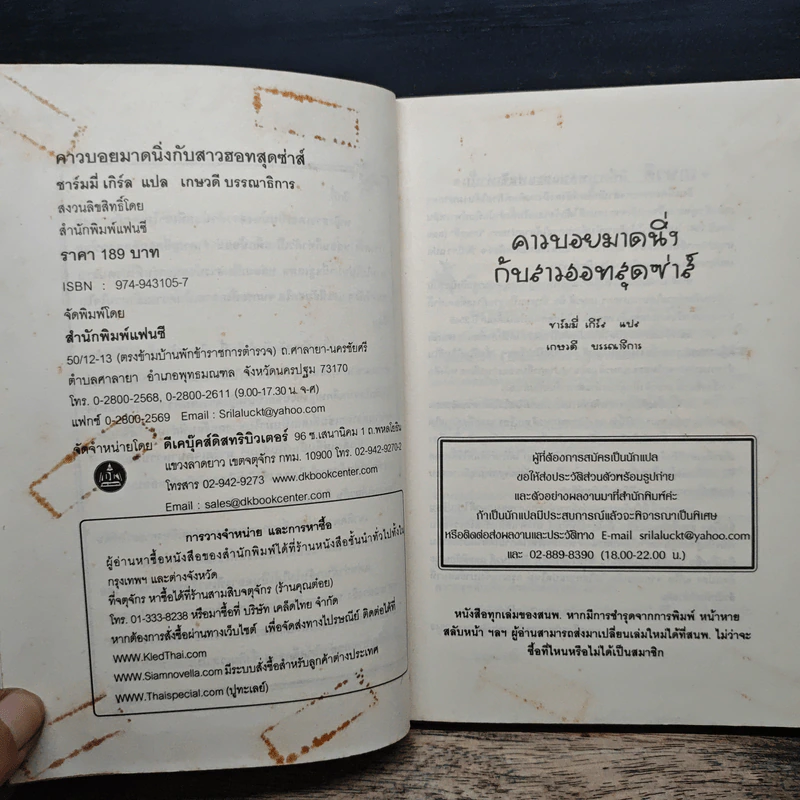 คาวบอยมาดนิ่งกับสาวฮอทสุดซ่าส์
ชาร์มมี่ เกิร์ล แปล เกษวดี บรรณาธิการ
สงวนลิขสิทธิ์โดย
สำนักพิมพ์แฟนซี
ราคา 189 บาท
ISBN : 974-943105-7
จัดพิมพ์โดย
สำนักพิมพ์แฟนซี
50/12-13 (ตรงข้ามบ้านพักข้าราชการตำรวจ) ถ.ศาลายา-นครชัยศรี
ตำบลศาลายา อำเภอพุทธมณฑล จังหวัดนครปฐม 73170
โทร. 0-2800-2568, 0-2800-2611 (9.00-17.30 น.จ-ศ)
แฟกซ์ 0-2800-2569 Email : Srilaluckt@yahoo.com
จัดจำหน่ายโดย ดีเคบุ๊คส์ดิสทริบิวเตอร์ 96 ซ.เสนานิคม 1 ถ.พหลโยธิน
แขวงลาดยาว เขตจตุจักร กทม. 10900 โทร. 02-942-9270-2
โทรสาร 02-942-9273 www.dkbookcenter.com
Email : sales@dkbookcenter.com
การวางจำหน่าย และการหาซื้อ
ผู้อ่านหาซื้อหนังสือของสำนักพิมพ์ได้ที่ร้านหนังสือชั้นนำทั่วไปทั้งใน
กรุงเทพฯ และต่างจังหวัด
ที่จตุจักร หาซื้อได้ที่ร้านสามสิบจตุจักร (ร้านคุณต๋อย)
โทร. 01-333-8238 หรือมาซื้อที่ บริษัท เคล็ดไทย จำกัด
หากต้องการสั่งซื้อผ่านทางเว็บไซต์ เพื่อจัดส่งทางไปรษณีย์ ติดต่อได้ที่
www.KledThai.com
www.Siamnovella.com มีระบบสั่งซื้อสำหรับลูกค้าต่างประเทศ
www.Thaispecial.com (ปูทะเลย์)
คาวบอยมาดนิ่ง
กับสาวฮอทสุดซ่าส์
ชาร์มมี่ เกิร์ล แปล
เกษวดี บรรณาธิการ
ผู้ที่ต้องการสมัครเป็นนักแปล
ขอให้ส่งประวัติส่วนตัวพร้อมรูปถ่าย
และตัวอย่างผลงานมาที่สำนักพิมพ์ค่ะ
ถ้าเป็นนักแปลมีประสบการณ์แล้วจะพิจารณาเป็นพิเศษ
หรือติดต่อส่งผลงานและประวัติทาง E-mail srilaluckt@yahoo.com
และ 02-889-8390 (18.00-22.00 น.)
หนังสือทุกเล่มของสนพ. หากมีการชำรุดจากการพิมพ์ หน้าหาย
สลับหน้า ฯลฯ ผู้อ่านสามารถส่งมาเปลี่ยนเล่มใหม่ได้ที่สนพ. ไม่ว่าจะ
ซื้อที่ไหนหรือไม่ได้เป็นสมาชิก